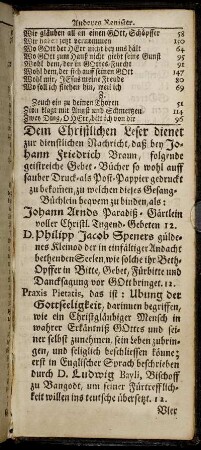 Anderes Register.
Wir gläuben all an einen GOtt, Schöpffer 58
Wir haben jetzt vernommen 100
Wo GOtt der HErr nicht bey uns hält 64
Wo GOtt zum Hauß nicht giebt seine Gunst 95
Wohl dem, der in GOttes Furcht 91
Wohl dem, der sich auf seinen GOtt 147
Wohl mir, JEsus meine Freude 80
Wo soll ich fliehen hin, weil ich 69
Z.
Zeuch ein zu deinen Thoren 51
Zion klagt mit Angst und Schmertzen 114
Zwey Ding, O HErr, bitt ich von dir 96
Dem Christlichen Leser dienet
zur dienstlichen Nachricht, daß bey Jo-
hann Friedrich Braun, folgende
geistreiche Gebet-Bücher so wohl auff
sauber Druck-als Post-Pappier gedruckt
zu bekommen, zu welchen dieses Gesang-
Büchlein beqvem zu binden, als:
Johann Arnds Paradiß-Gärtlein
voller Christl. Tugend-Gebeten 12.
D. Philipp Jacob Speners gülde-
nes Kleinod der in einfältiger Andacht
bethenden Seelen, wie solche ihr Beth-
Opffer in Bitte, Gebet, Fürbitte und
Dancksagung vor GOtt bringet. 12.
Praxis Pietatis, das ist: Ubung der
Gottseeligkeit, darinnen begriffen,
wie ein Christgläubiger Mensch in
wahrer Erkäntniß GOttes und sei-
ner selbst zunehmen, sein Leben zubrin-
gen, und seliglich beschliessen könne;
erst in Englischer Sprach beschrieben
durch D. Ludwig Bayli, Bischoff
zu Bangodt, um seiner Fürtrefflich-
keit willen ins teutsche übersetzt. 12.
Vier